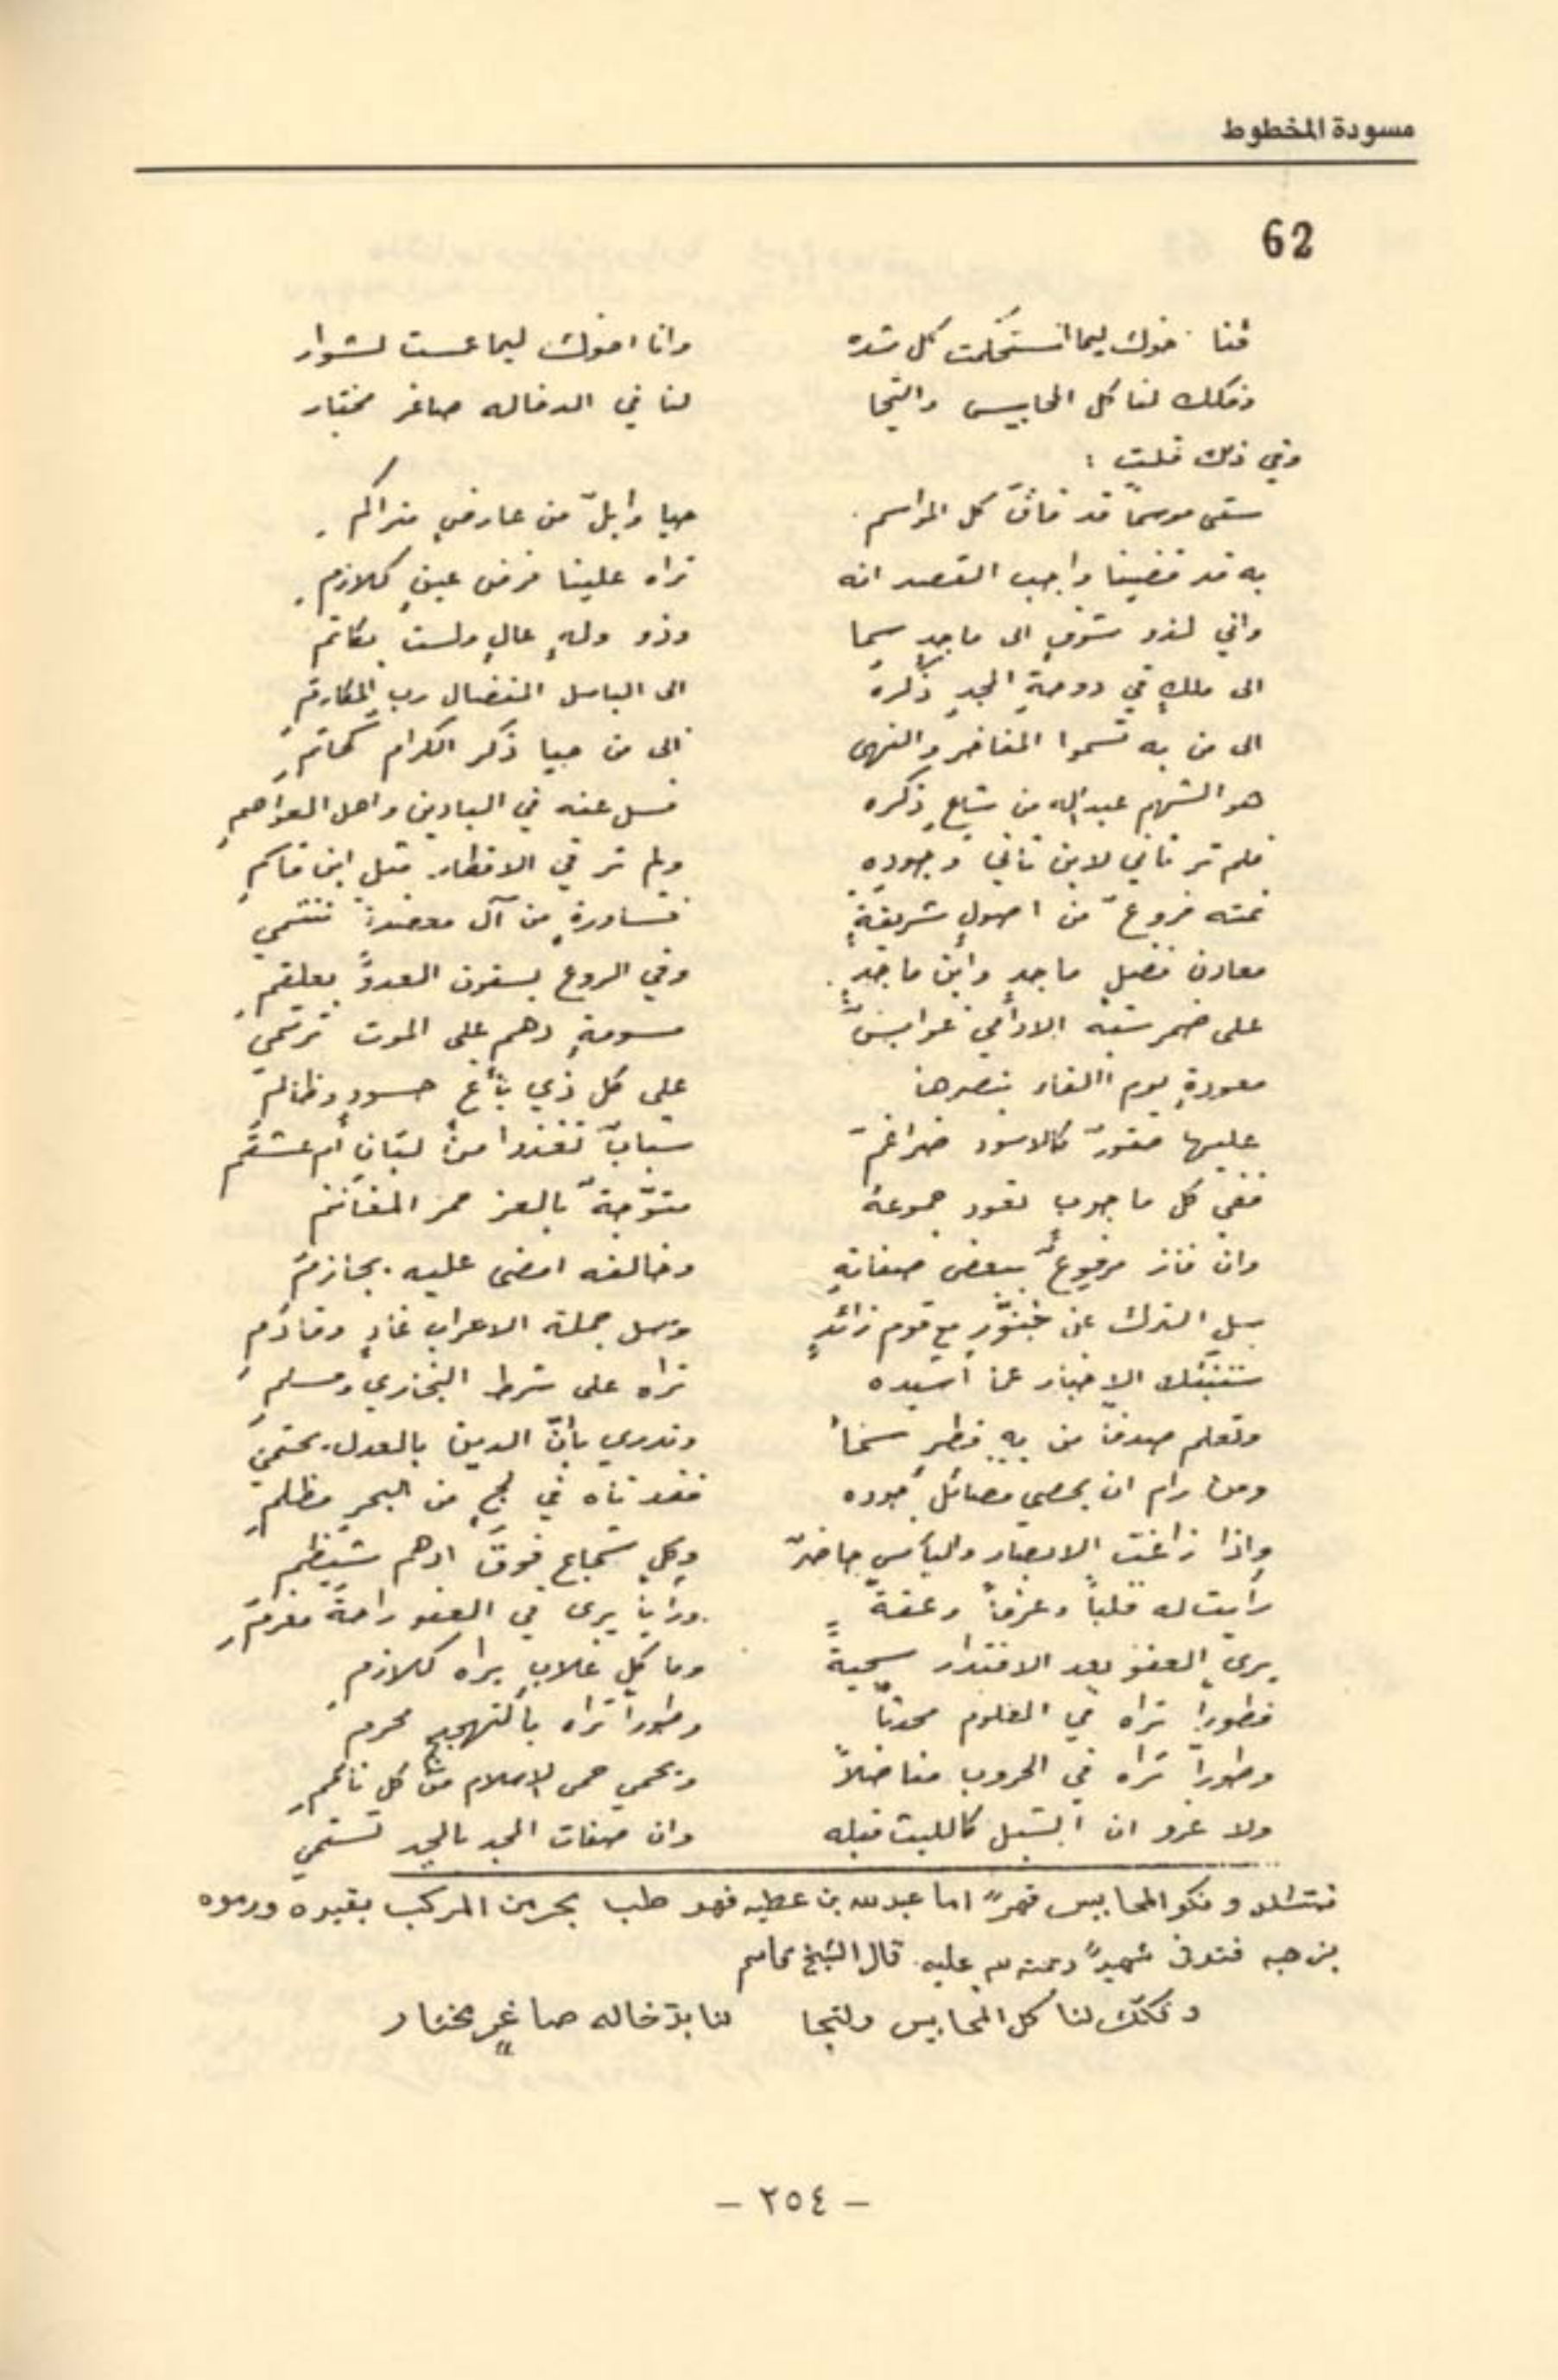 مسودة المخطوط
62
خوك ليما استحكمت كل شده وانا اخوك ليما عست لشوار
وفكك لنا كل المحابيس والتجا لنا في الدخاله صاغر مختار
وفي ذلك قلت :
سقى موسماً قد فاق كل المواسم حيا وابلٌ من عارضٍ متراكم
به قد قضينا واجب القصد انه تراه علينا فرض عينٍ كلازم
واني لذو شوقٍ الى ماجدٍ سما وذو ولهٍ عالٍ ولست بكاتم
الى ملكٍ في دوحةِ المجدِ ذكره الى الباسل المفضال رب المكارم
الى من به تسموا المفاخر والنهى الى من حيا ذكر الكرام كحاتم
هو الشهم عبدالله من شاع ذكره فسل عنه في البادين واهل العواصم
فلم تر ثاني لابن ثاني وجوده ولم تر في الاقطار مثل ابن قاسم
نمته فروعٌ من اصولٍ شريفةٍ قساورةٍ من آل تنتمي
معادن فضلٍ ماجدٍ وابن ماجدٍ وفي الروع يسقون العدوَّ بعلقم
على ضمر شبه عوابسٌ مسومةٍ دهم على الموت ترتمي
معودةٍ يوم اللقاء بنصرها على كل ذي حسودٍ وظالم
عليها صقورٌ كالاسود ضراغم شبابٌ تغذوا من لبانِ ام عشقم
ففي كل ما حوب تقود جموعه متوّجةٌ بالعز المغانم
وان فاز مرفوعٌ ببعض صفاته وخالفه امضى عليه بجازم
سل الترك عن مع قوم زائدٍ وسل جملة الاعراب غادٍ وقادم
ستنبئك الاخبار عما اشيده تراه على شرط البخاري ومسلم
وتعلم صدقاً من به قطر سخا وتدري بانّ الدين بالعدل يحتمي
ومن رام ان يحصي فضائل جوده فقد تاه في لجٍ من البحر مظلم
واذا زاغت الابصار والبأس حاضرٌ وكل شجاع فوق ادهم شيظم
رأيت له قلباً وعزماً وعفةً ورأياً يرى في العفو راحة مغرم
يرى العفو بعد الاقتدار سجيةً وما كل يراه كلازم
فطوراً تراه في العلوم محدثاً وطوراً تراه بالتهجد محرم
وطوراً تراه في الحروب مناضلاً ويحمي حمى الاسلام من كل ناقم
ولا غرو ان الشبل كالليث فعله وان صفات المجد بالمجد تستمي
ونكو المحابيس قهراً اما عبدلله بن عطيه فهو طب بحرمن المركب بقيوده ورموه
فتوفى شهيداً رحمة لله عليه. قال الشيخ
وفكك لنا كل المحابيس ولتجا لنا بدخاله صاغرٍ مختار
– ٢٥٤ –